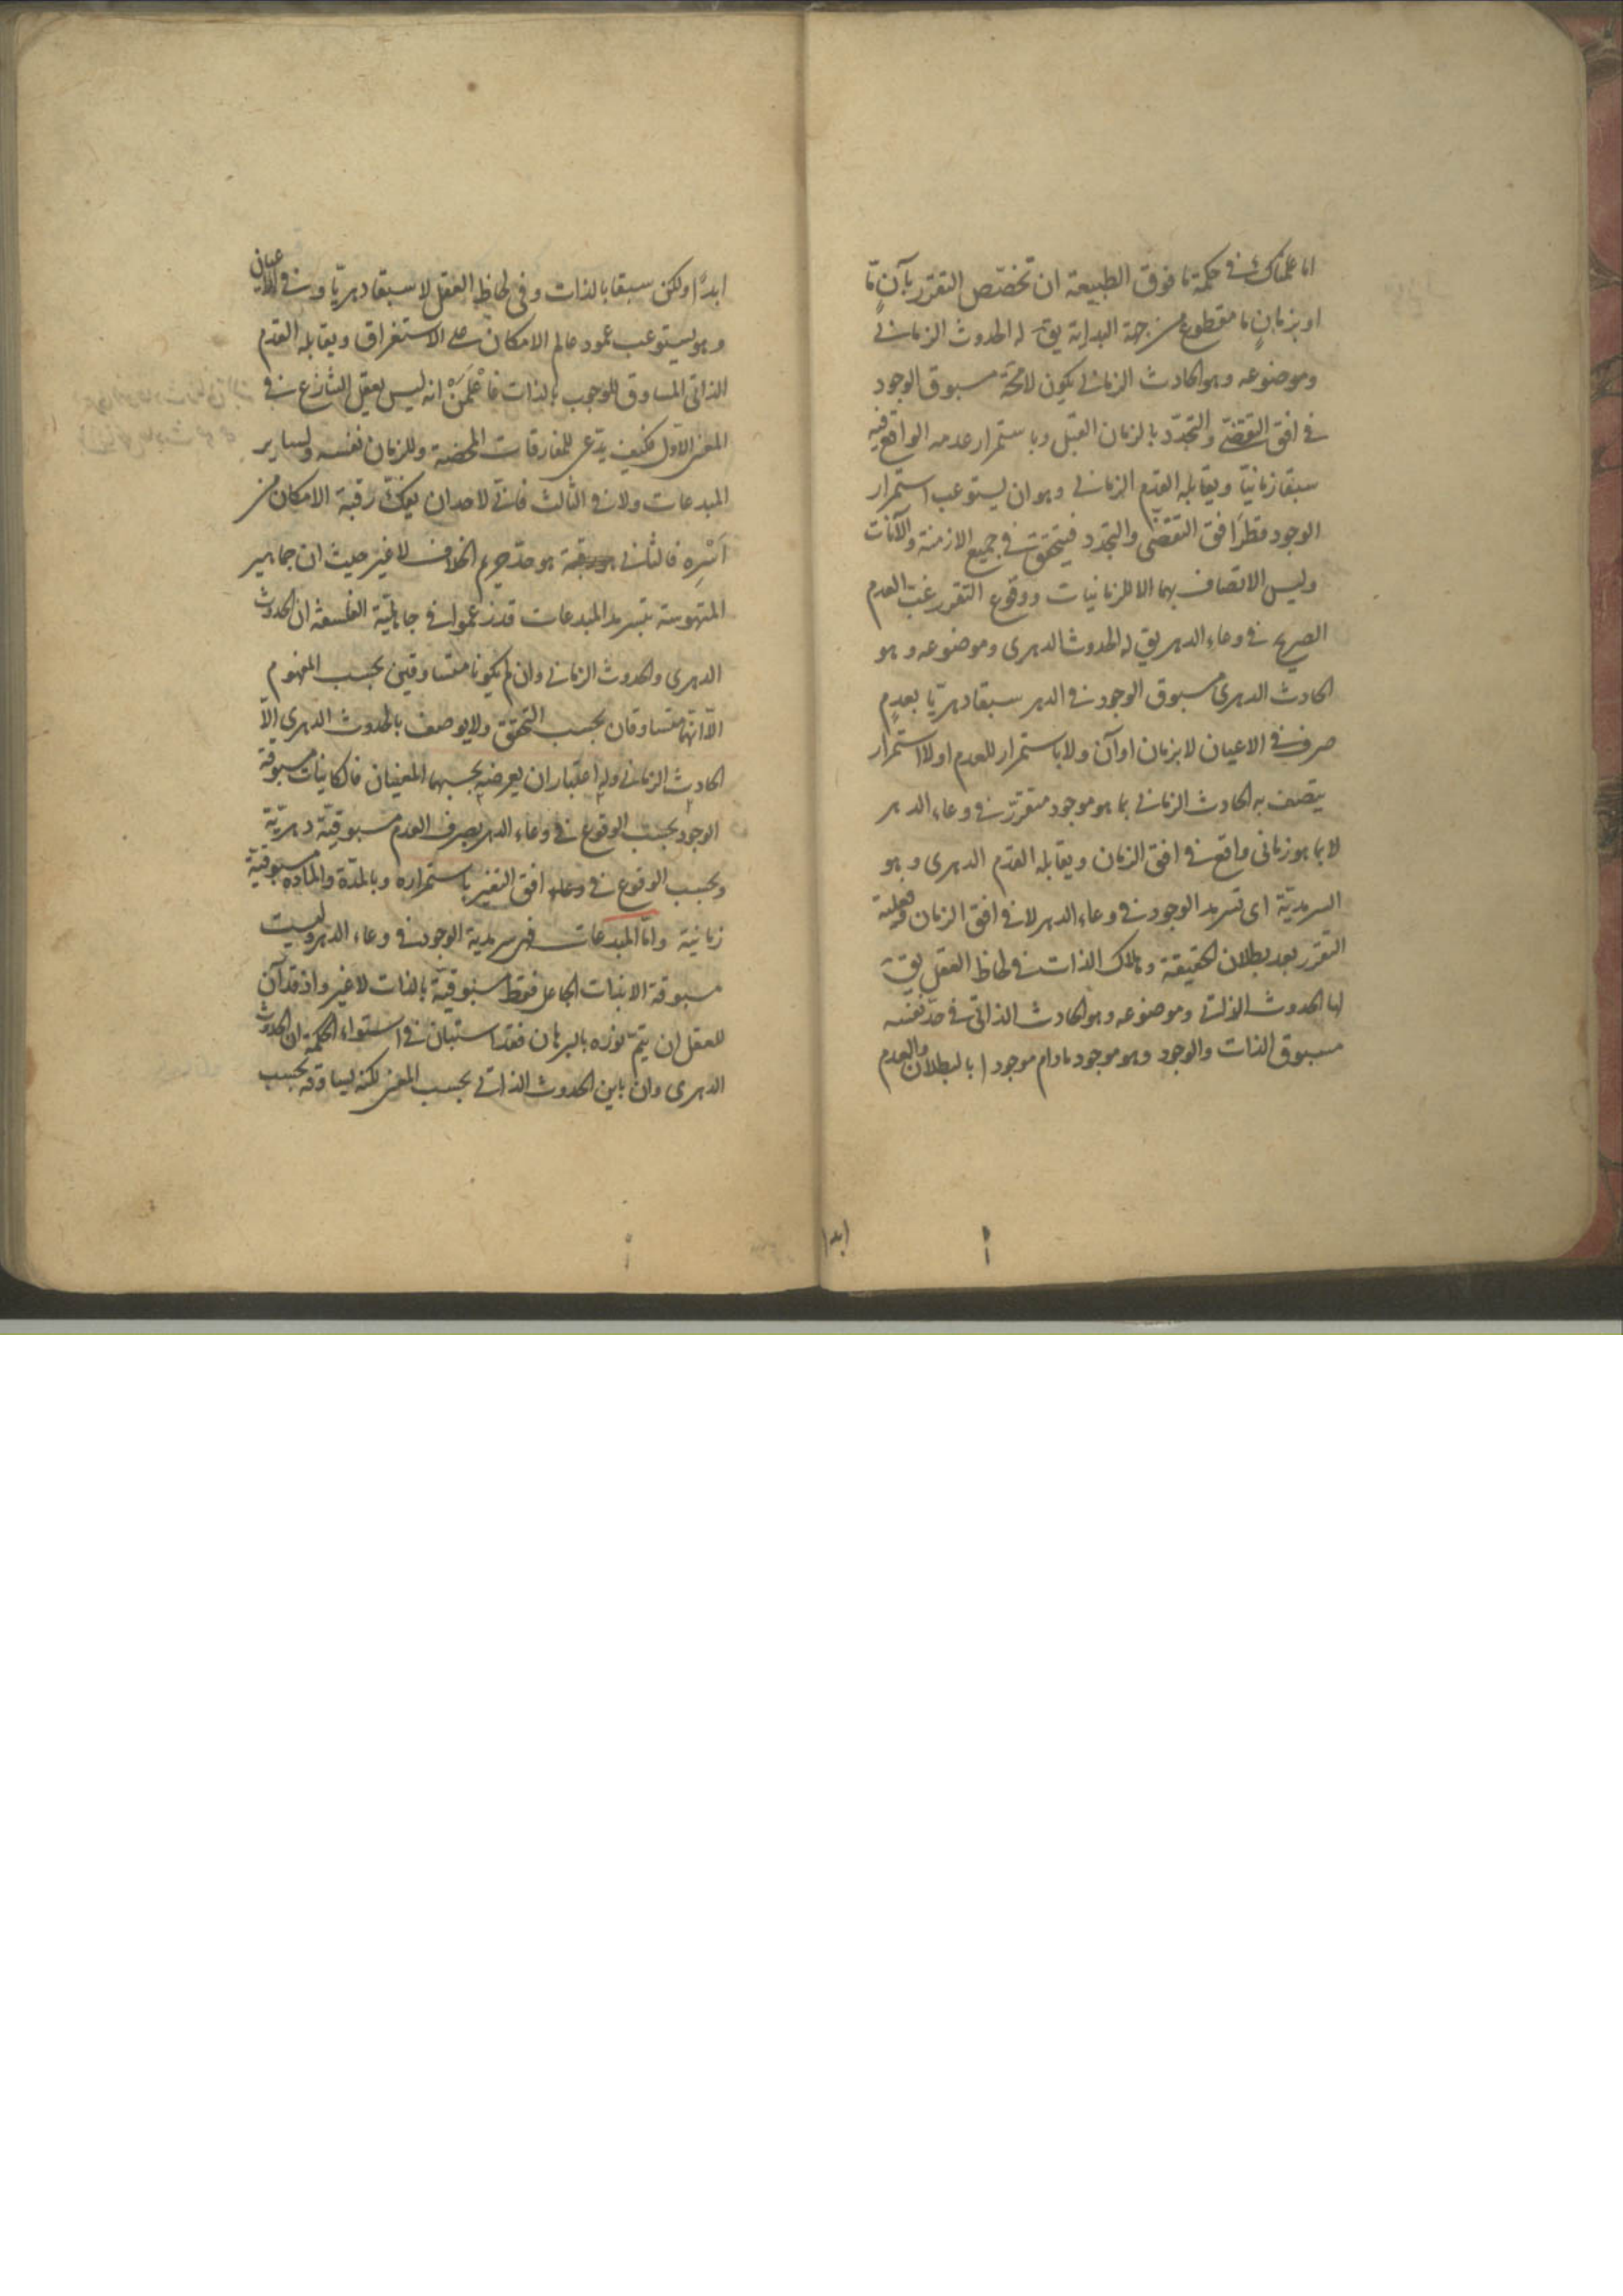 اما علمناك في حكمة ما فوق الطبيعة ان تخصّص التقرر بآنٍ مّا
او بزمانٍ ما مقطوع من جهة البداية يق له الحدوث الزماني
وموضوعه وهو الحادث الزماني يكون لامحة مسبوق الوجود
في افق التقضّي والتجدّد بالزمان القبل وباستمرار عدمه الواقع فيه
سبقا زمانيّا ويقابله القدم الزماني وهو ان يستوعب استمرار
الوجود قطرَ افق التقضّي والتجدد فيتحقق في جميع الازمنة والآنات
وليس الاتصاف بهما الا للزمانيات ووقوع التقرر غبّ العدم
الصريح في وعاء الدهر يق له الحدوث الدهرى وموضوعه وهو
الحادث الدهرى مسبوق الوجود في الدهر سبقا دهريّا بعدمٍ
صرف في الاعيان لا بزمان او آن ولا باستمرار للعدم او لا استمرار
يتصف به الحادث الزماني بما هو موجود متقرر في وعاء الدهر
لا بما هو زمانى واقع في افق الزمان ويقابله القدم الدهرى وهو
السرمديّة اى تسرمد الوجود في وعاء الدهر لا في افق الزمان وفعلية
التقرر بعد بطلان الحقيقة وهلاك الذات في لحاظ العقل يق
لها الحدوث الذاتي وموضوعه وهو الحادث الذاتي في حدّ نفسه
مسبوق الذات والوجود وهو موجود مادام موجودا بالبطلان والعدم
ابدا
ابدًا ولكن سبقا بالذات وفى لحاظ العقل لا سبقا دهريّا وفي الاعيان
وهو يستوعب عمود عالم الامكان على الاستغراق ويقابله القدم
الذاتى المساوق للوجوب بالذات فاعْلَمَنْ انه ليس يعقل التنازع في
المعنى الاوّل فكيف يدّعى للمفارقات المحضة وللزمان نفسه ولساير
المبدعات ولا في الثالث فانّى لاحد ان يفكّ رقبة الامكان من
اَسْرِه فالثاني هو حدّ حريم الخلاف لا غير حيث ان جماهير
المتهوسة بتسرمد المبدعات قد زعموا في جاهليّة الفلسفة ان الحدوث
الدهرى والحدوث الزماني وان لم يكونا متساوقين بحسب المفهوم
الّا انّهما متساوقان بحسب التحقق ولا يوصف بالحدوث الدهرى الّا
الحادث الزماني وله اعتباران يعرضه بحسبهما المعنيان فالكاينات مسبوقة
الوجود بحسب الوقوع في وعاء الدهر بصرف العدم مسبوقيّة دهريّة
وبحسب الوقوع في وعاء افق التغير باستمراره وبالمدّة والمادة مسبوقيّة
زمانية وامّا المبدعات فهي سرمدية الوجود في وعاء الدهر وليست
مسبوقة الا بذات الجاعل فقط مسبوقيّة بالذات لا غير واذ قد آن
للعقل ان يتمّ نوره بالبرهان فقد استبان في استواء الحكمة ان الحدوث
الدهرى وان باين الحدوث الذاتي بحسب المعنى لكنه يساوقه بحسب